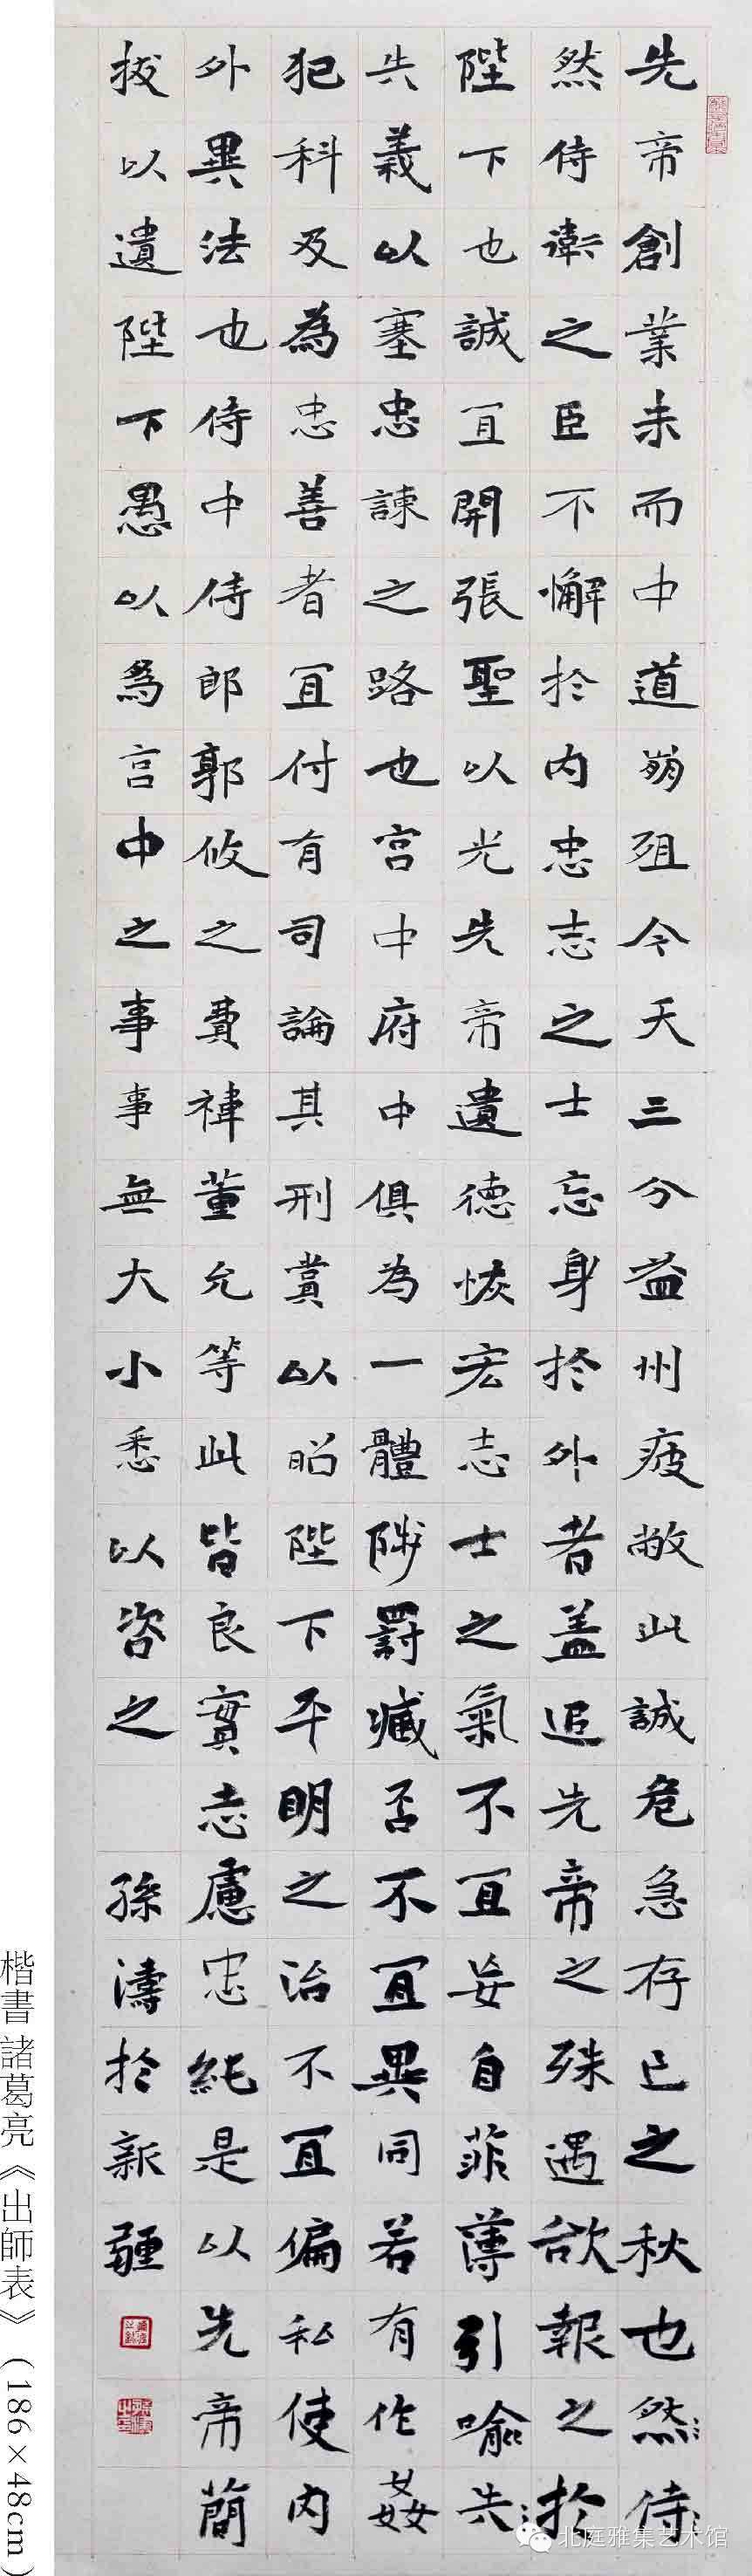 先帝創業未而中道崩殂今天三分益州疲敝此誠危急存亡之秋也然侍
然侍衛之臣不懈於内忠志之士忘身於外者蓋追先帝之殊遇欲報之於
陛下也誠宜開張聖以光先帝遺德恢宏志士之氣不宜妄自菲薄引喻失
失義以塞忠諫之路也宮中府中俱為一體陟罰臧否不宜異同若有作姦
犯科及為忠善者宜付有司論其刑賞以昭陛下平明之治不宜偏私使内
外異法也侍中侍郎郭攸之費禕董允等此皆良實志慮忠純是以先帝簡
拔以遺陛下愚以為宮中之事事無大小悉以咨之 孫濤於新疆
楷書 諸葛亮《出師表》（186×48cm）
北庭雅集艺术馆